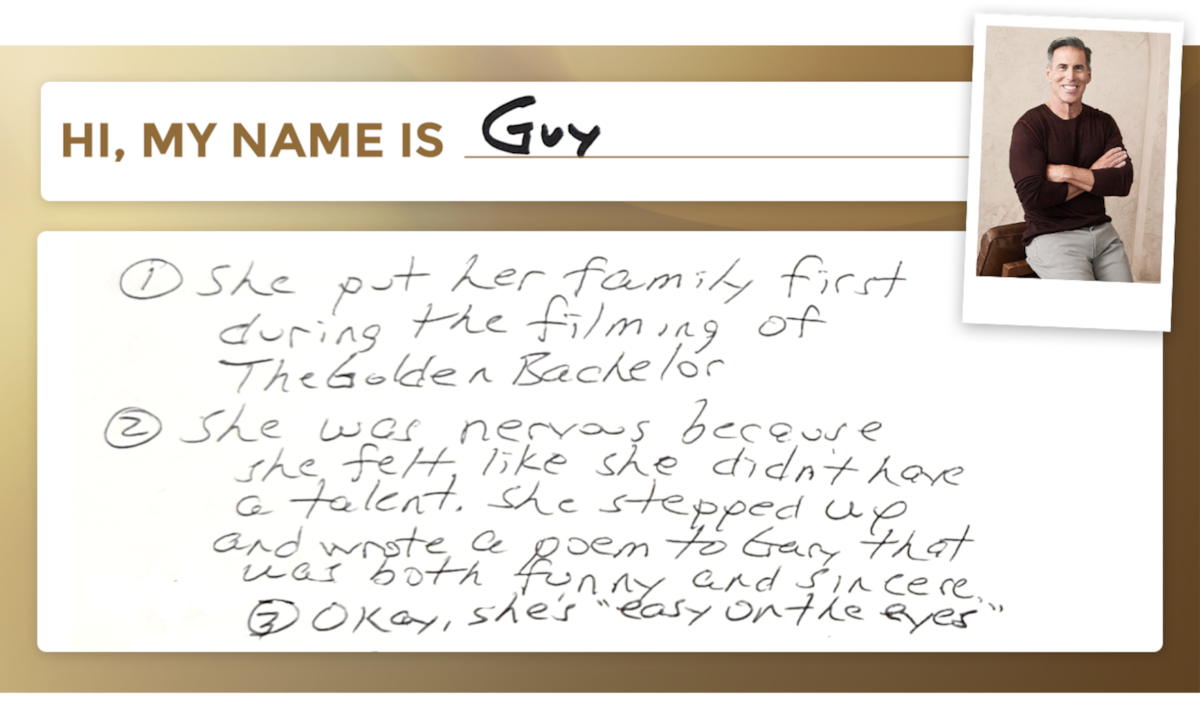 HI, MY NAME IS Guy
① She put her family first
during the filming of
The Golden Bachelor
② She was nervous because
she felt like she didn't have
a talent. She stepped up
and wrote a poem to Gary that
was both funny and sincere.
③ Okay, she's "easy on the eyes"